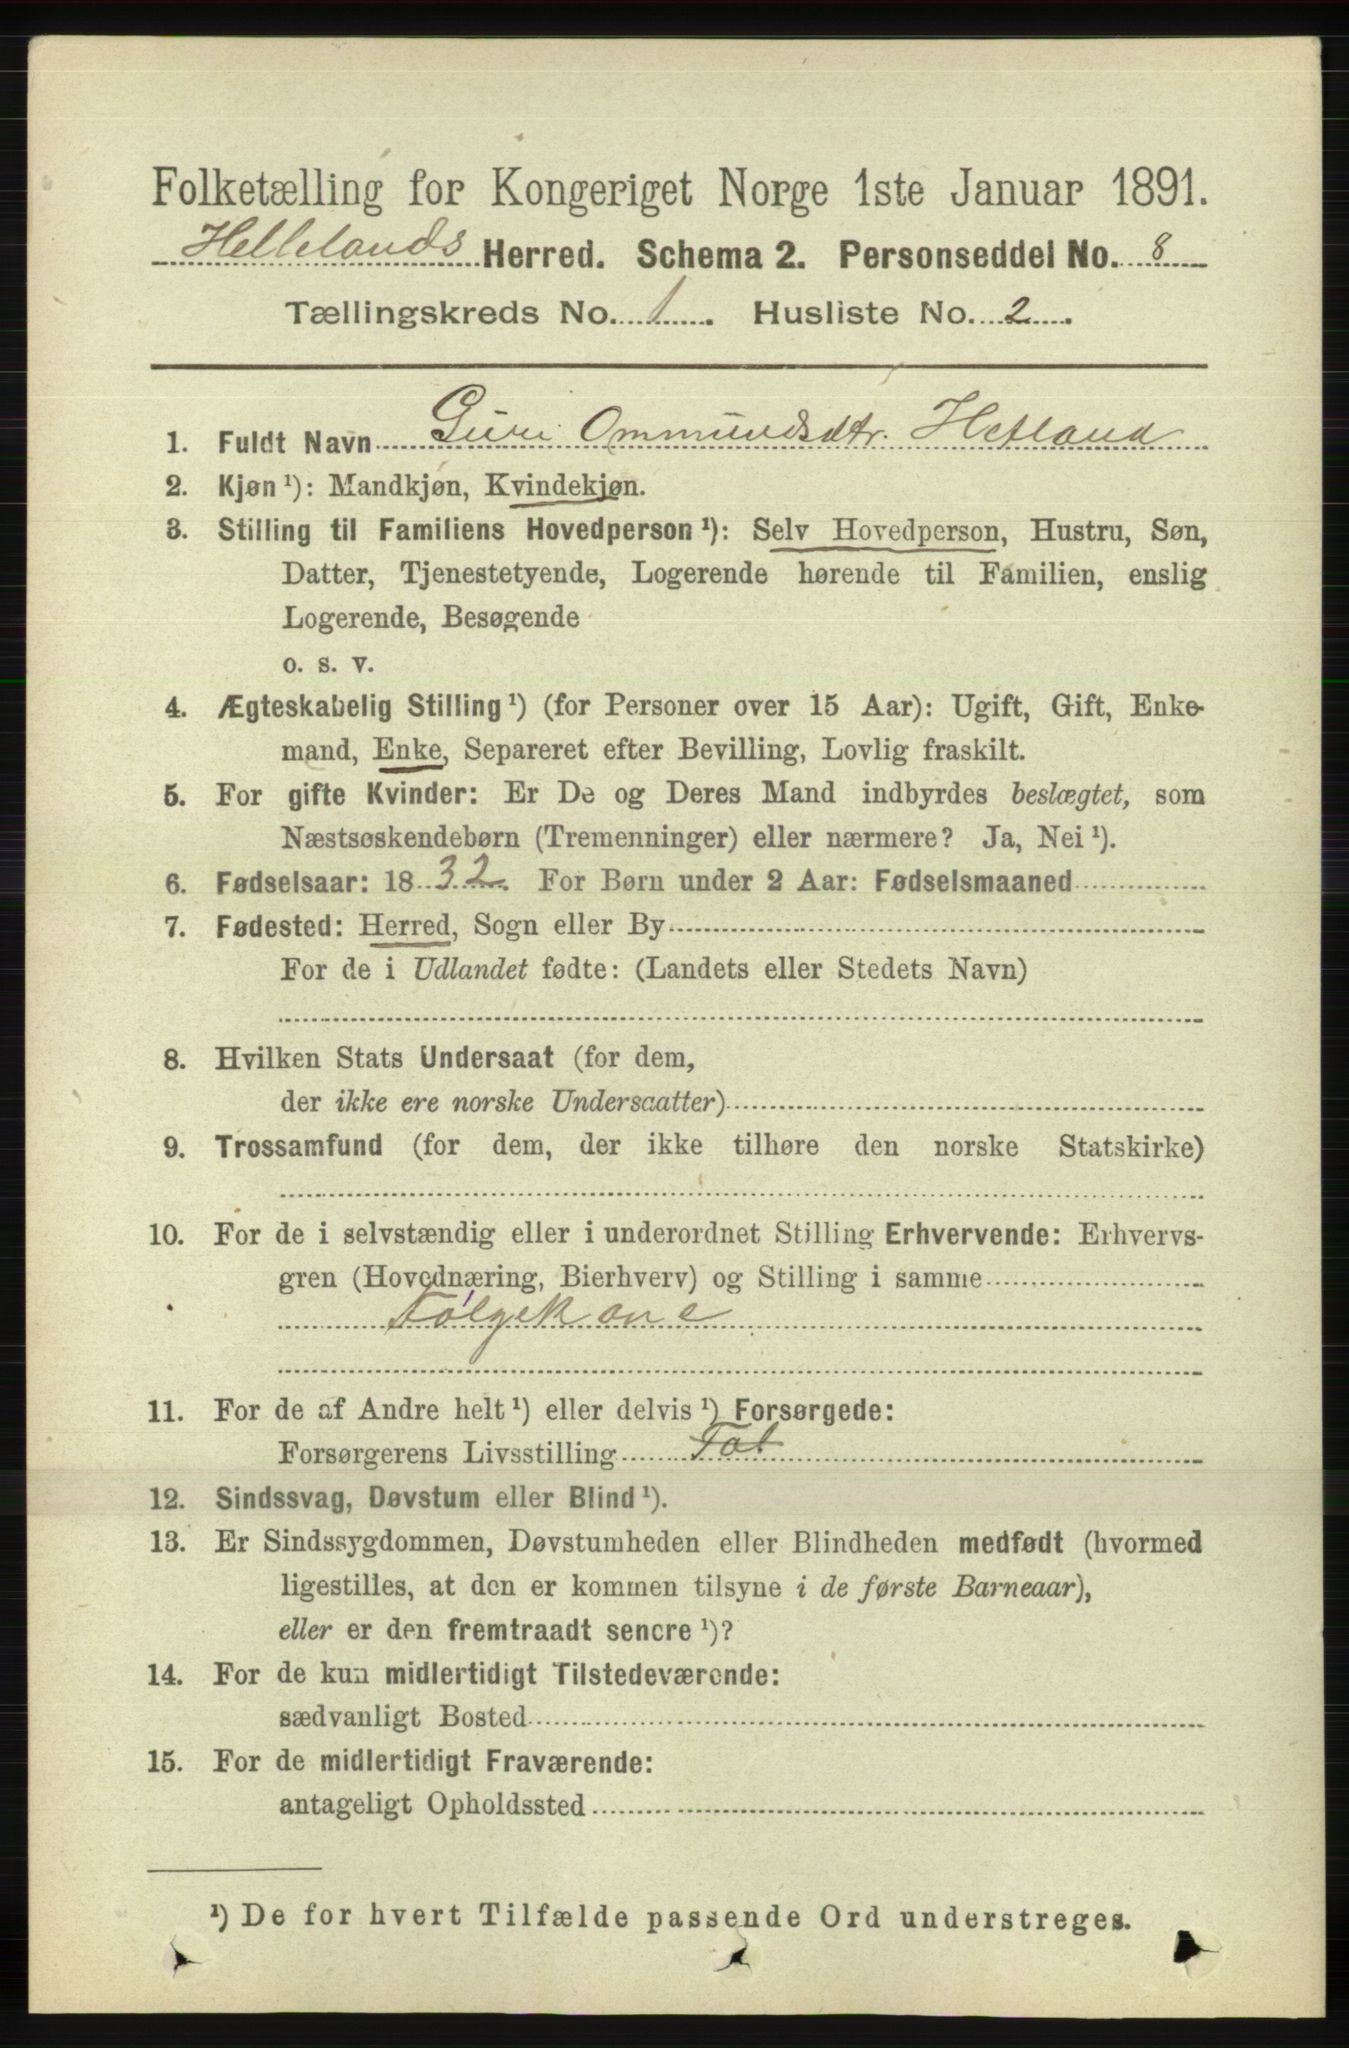 Folketælling for Kongeriget Norge 1ste Januar 1891.
Hellelands Herred. Schema 2. Personseddel No. 8
Tællingskreds No. 1. Husliste No. 2.
1. Fuldt Navn Guri Ommundsdtr. Hetland
2. Kjøn ¹): Mandkjøn, Kvindekjøn.
3. Stilling til Familiens Hovedperson ¹): Selv Hovedperson, Hustru, Søn,
Datter, Tjenestetyende, Logerende hørende til Familien, enslig
Logerende, Besøgende
o. s. v.
4. Ægteskabelig Stilling ¹) (for Personer over 15 Aar): Ugift, Gift, Enke-
mand, Enke, Separeret efter Bevilling, Lovlig fraskilt.
5. For gifte Kvinder: Er De og Deres Mand indbyrdes beslægtet, som
Næstsøskendebørn (Tremenninger) eller nærmere? Ja, Nei ¹).
6. Fødselsaar: 1832. For Børn under 2 Aar: Fødselsmaaned
7. Fødested: Herred, Sogn eller By
For de i Udlandet fødte: (Landets eller Stedets Navn)
8. Hvilken Stats Undersaat (for dem,
der ikke ere norske Undersaatter)
9. Trossamfund (for dem, der ikke tilhøre den norske Statskirke)
10. For de i selvstændig eller i underordnet Stilling Erhvervende: Erhvervs-
gren (Hovednæring, Bierhverv) og Stilling i samme
Følgekone
11. For de af Andre helt ¹) eller delvis ¹) Forsørgede:
Forsørgerens Livsstilling
12. Sindssvag, Døvstum eller Blind ¹).
13. Er Sindssygdommen, Døvstumheden eller Blindheden medfødt (hvormed
ligestilles, at den er kommen tilsyne i de første Barneaar),
eller er den fremtraadt senere ¹)?
14. For de kun midlertidigt Tilstedeværende:
sædvanligt Bosted
15. For de midlertidigt Fraværende:
antageligt Opholdssted
¹) De for hvert Tilfælde passende Ord understreges.